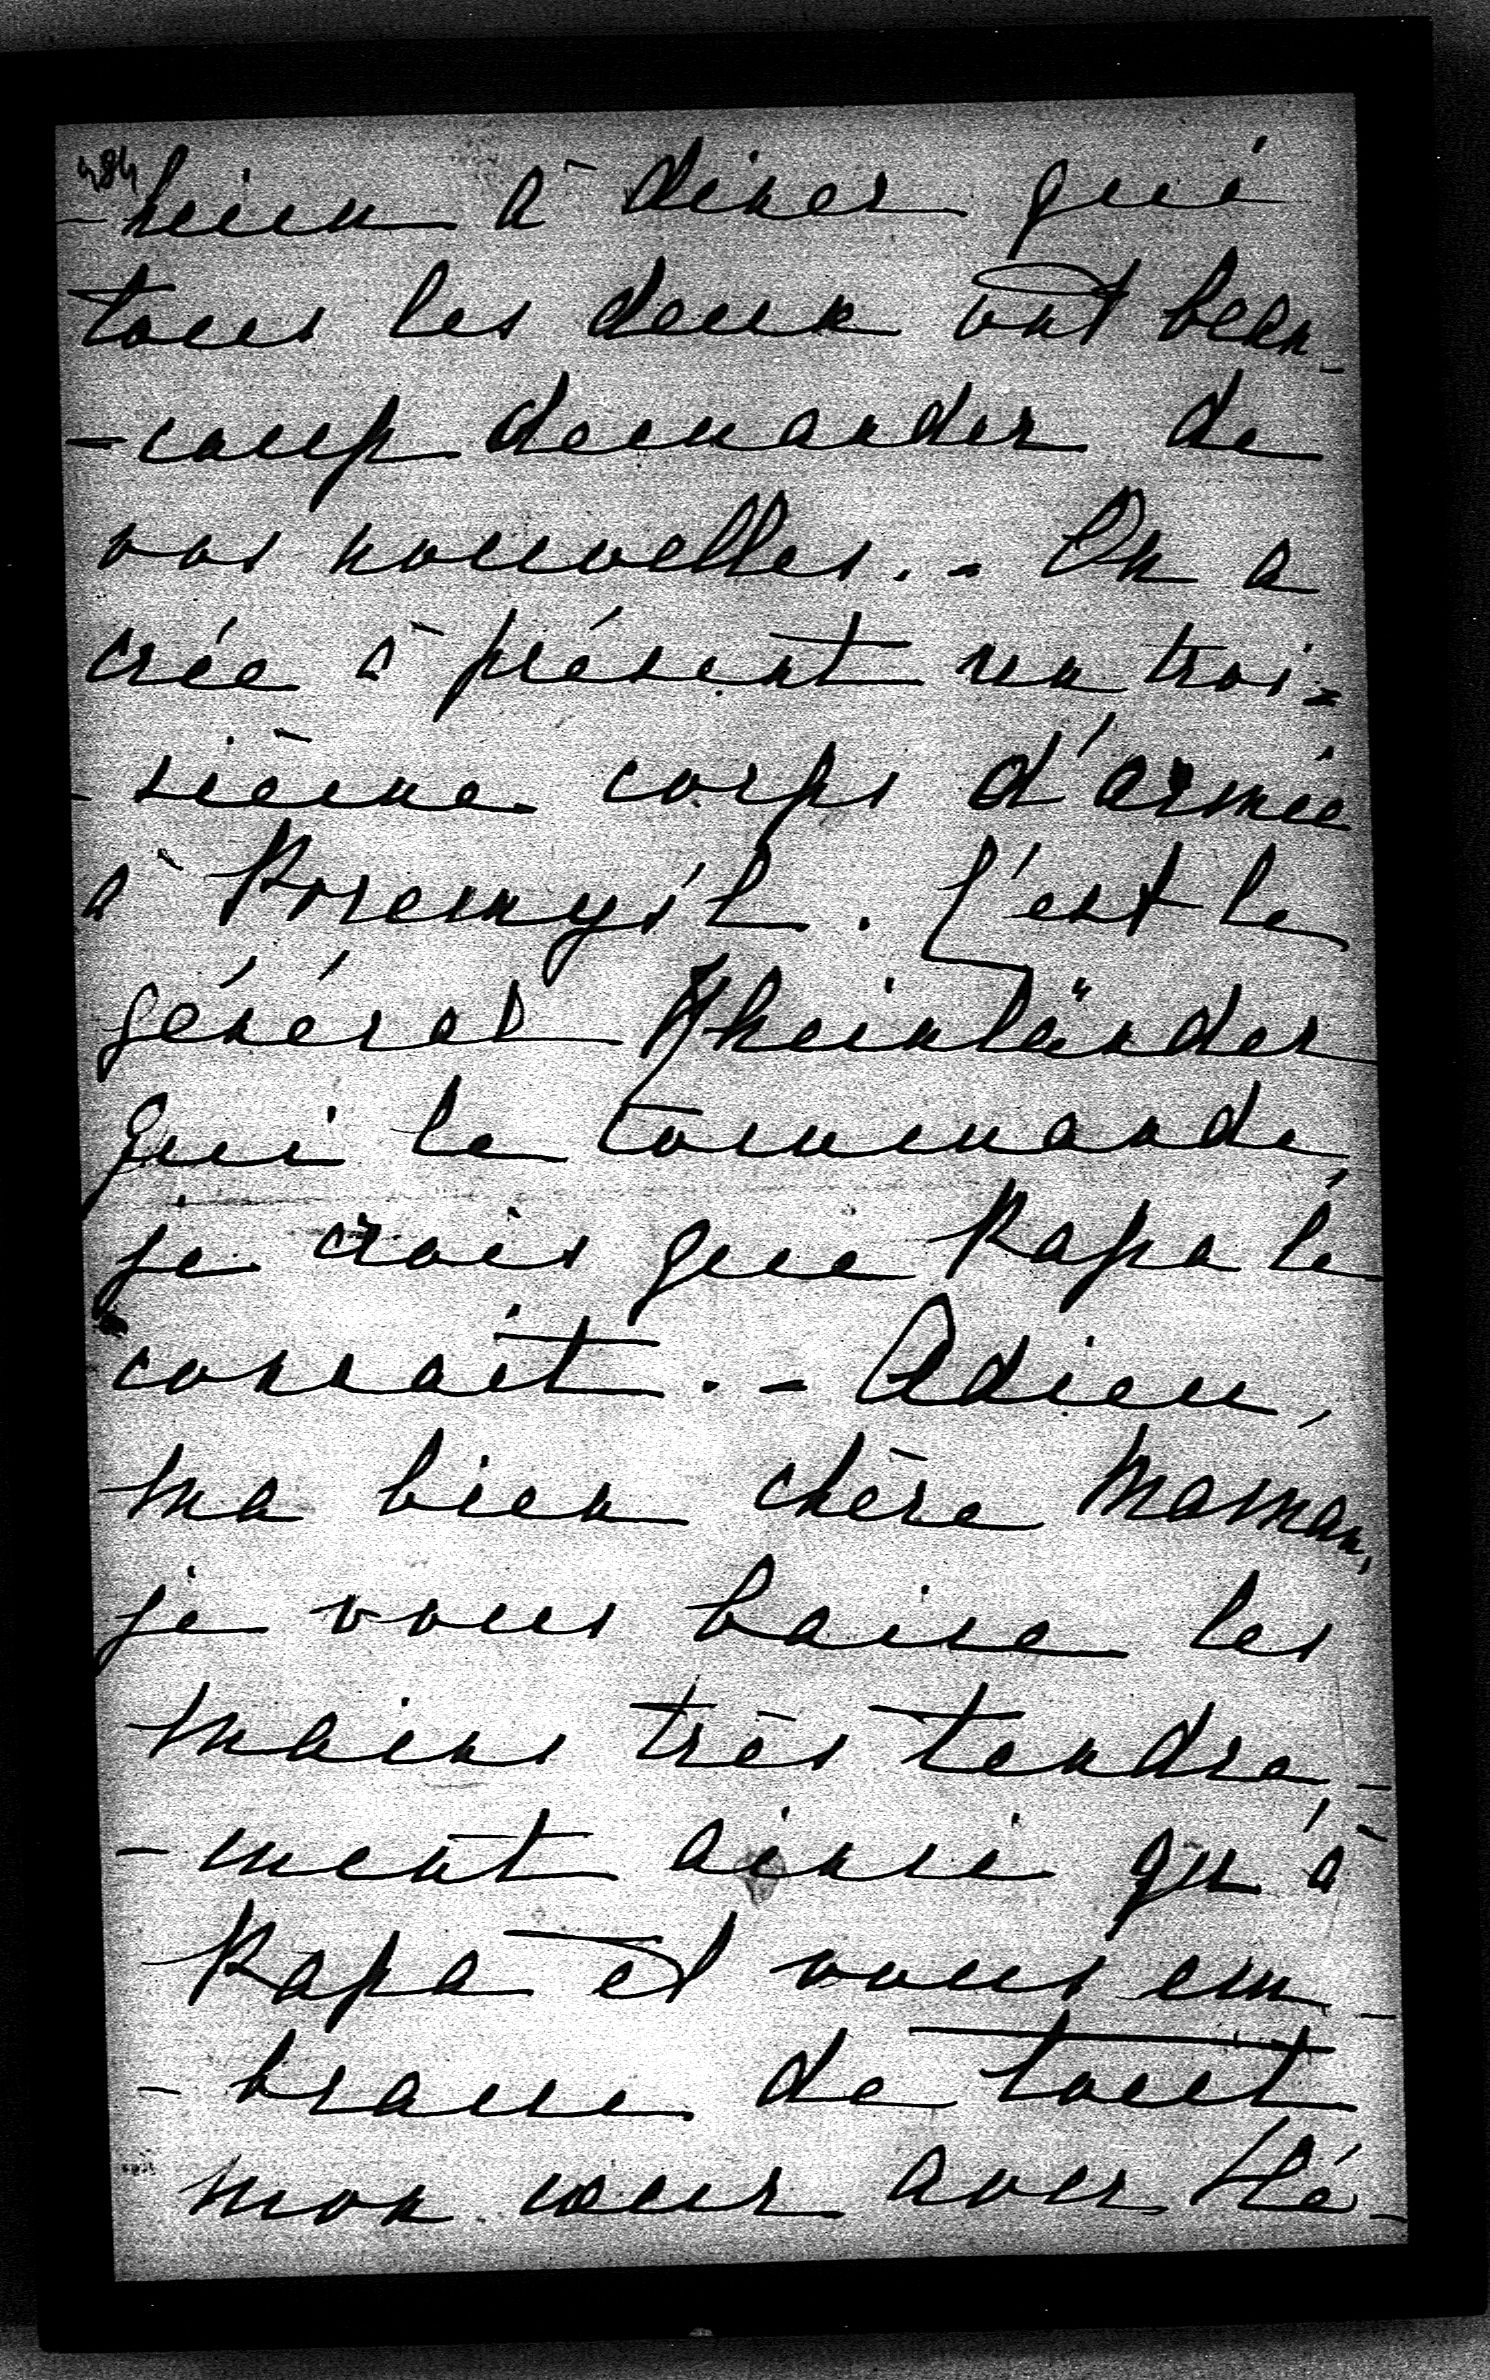 484
-heim à diner qui
tous les deux ont beau-
-coup demander de
vos nouvelles. - On a
crée à présent un troi-
-sième corps d'armée
à Przemyśl. C'est le
général Rheinländer
qui le commande,
je crois que Papa le
connait. - Adieu,
ma bien chère Maman,
je vous baise les
mains très tendre-
-ment ainsi qu'à
Papa et vous em-
-brasse de tout
mon cœur avec